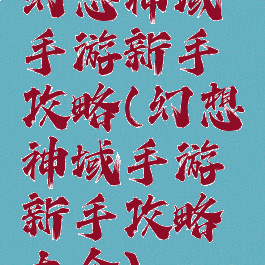 幻想神域
手游新手
攻略(幻想
神域手游
新手攻略
大全)